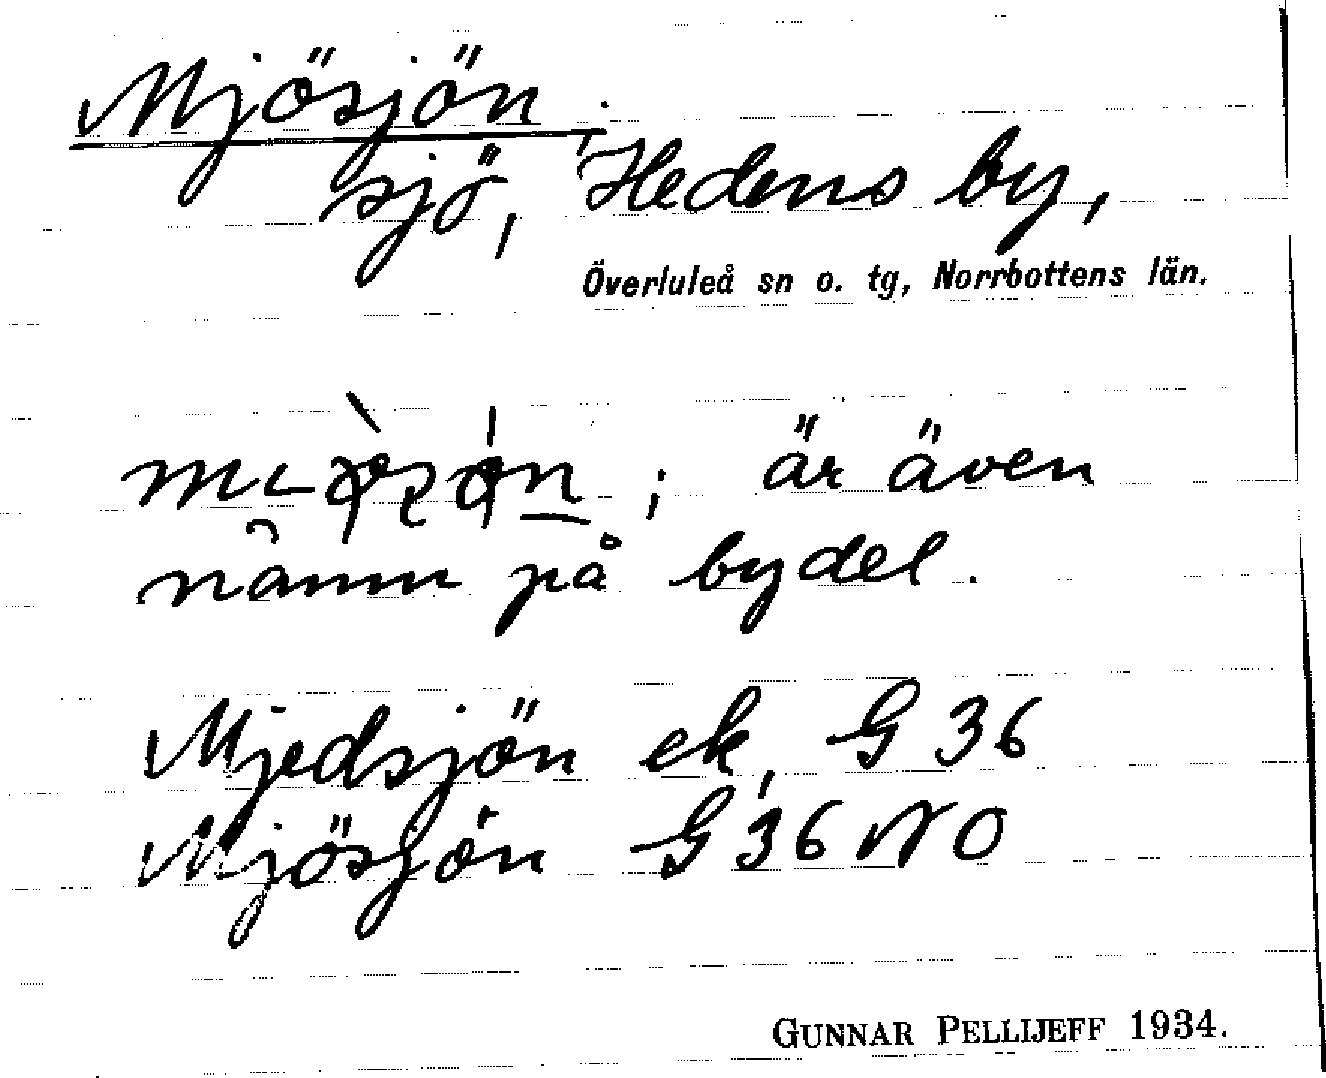 Mjösjön,
sjö, Hedens by,
Överluleå sn o. tg, Norrbottens län.
; är även
namn på bydel.
Mjedsjön ek, G 36
Mjösjön G 36 NO
GUNNAR PELLIJEFF 1934.